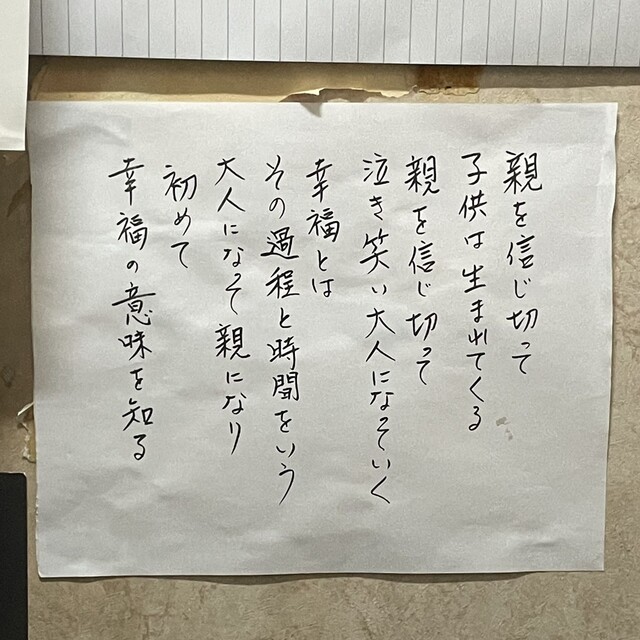 親を信じ切って
子供は生まれてくる
親を信じ切って
泣き笑い大人になっていく
幸福とは
その過程と時間をいう
大人になって親になり
初めて
幸福の意味を知る